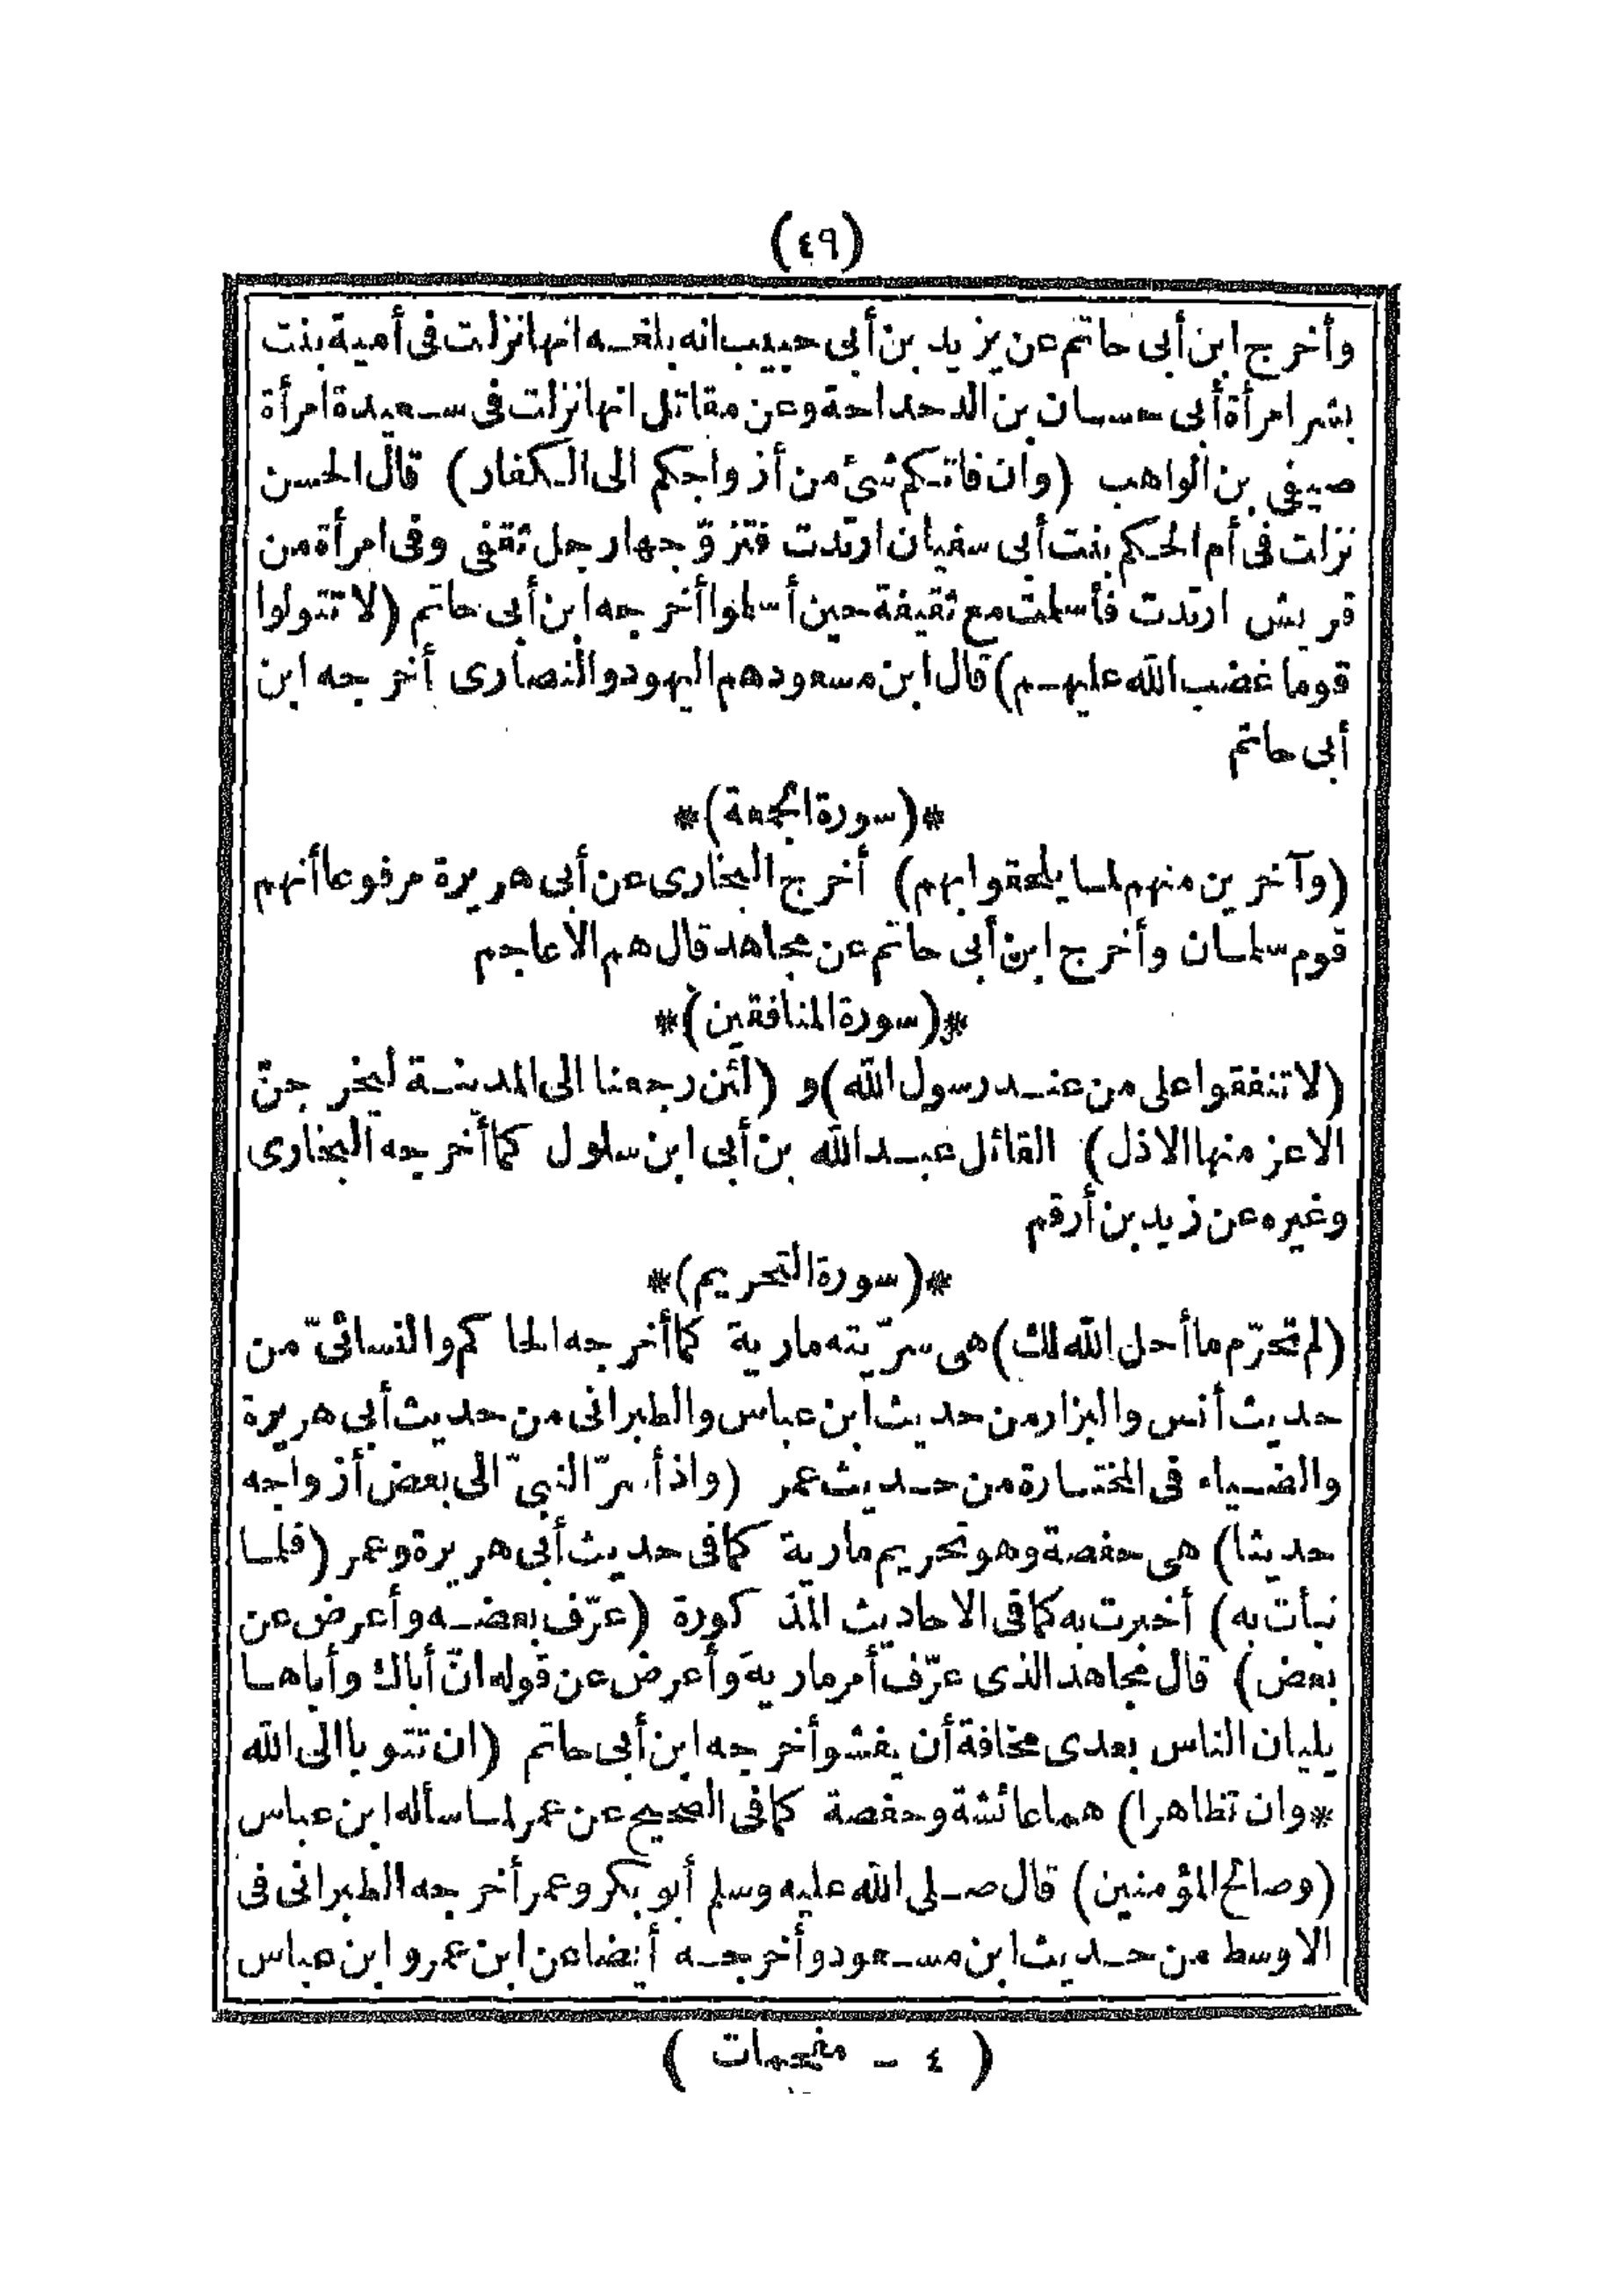 (٤٩)
وأخرج ابن أبى حاتم عن يزيد بن أبى حبيب انه بلغه انها نزلت فى أمية بنت
بشر امرأة أبى حسان بن الدحداحة وعن مقاتل انها نزلت فى سعيدة امرأة
صيفى بن الواهب (وان فاتكم شئ من أزواجكم الى الكفار) قال الحسن
نزلت فى أم الحكم بنت أبى سفيان ارتدت فتزوّجها رجل ثقفى وفى امرأة من
قريش ارتدت فأسلمت مع ثقيفة حين أسلموا أخرجه ابن أبى حاتم (لا تتولوا
قوما غضب الله عليهم) قال ابن مسعود هم اليهود والنصارى أخرجه ابن
أبى حاتم
*(سورة الجمعة)*
(وآخرين منهم لما يلحقوا بهم) أخرج البخارى عن أبى هريرة مرفوعا أنهم
قوم سلمان وأخرج ابن أبى حاتم عن مجاهد قال هم الأعاجم
*(سورة المنافقين)*
(لا تنفقوا على من عند رسول الله) و (لئن رجعنا الى المدينة ليخرجنّ
الاعز منها الاذل) القائل عبد الله بن أبى ابن سلول كما أخرجه البخارى
وغيره عن زيد بن أرقم
*(سورة التحريم)*
(لم تحرّم ما أحل الله لك) هى سرّيته مارية كما أخرجه الحاكم والنسائىّ من
حديث أنس والبزار من حديث ابن عباس والطبرانى من حديث أبى هريرة
والضياء فى المختارة من حديث عمر (واذ أسرّ النبىّ الى بعض أزواجه
حديثا) هى حفصة وهو تحريم مارية كما فى حديث أبى هريرة وعمر (فلما
نبأت به) أخبرت به كما فى الاحاديث المذكورة (عرّف بعضه وأعرض عن
بعض) قال مجاهد الذى عرّف أمر مارية وأعرض عن قوله انّ أباك وأباها
يليان الناس بعدى مخافة أن يفشو أخرجه ابن أبى حاتم (ان تتوبا الى الله
*وان تظاهرا) هما عائشة وحفصة كما فى الصحيح عن عمر لما سأله ابن عباس
(وصالح المؤمنين) قال صلى الله عليه وسلم أبو بكر وعمر أخرجه الطبرانى فى
الاوسط من حديث ابن مسعود وأخرجه أيضا عن ابن عمر وابن عباس
( ٤ - مفحمات )